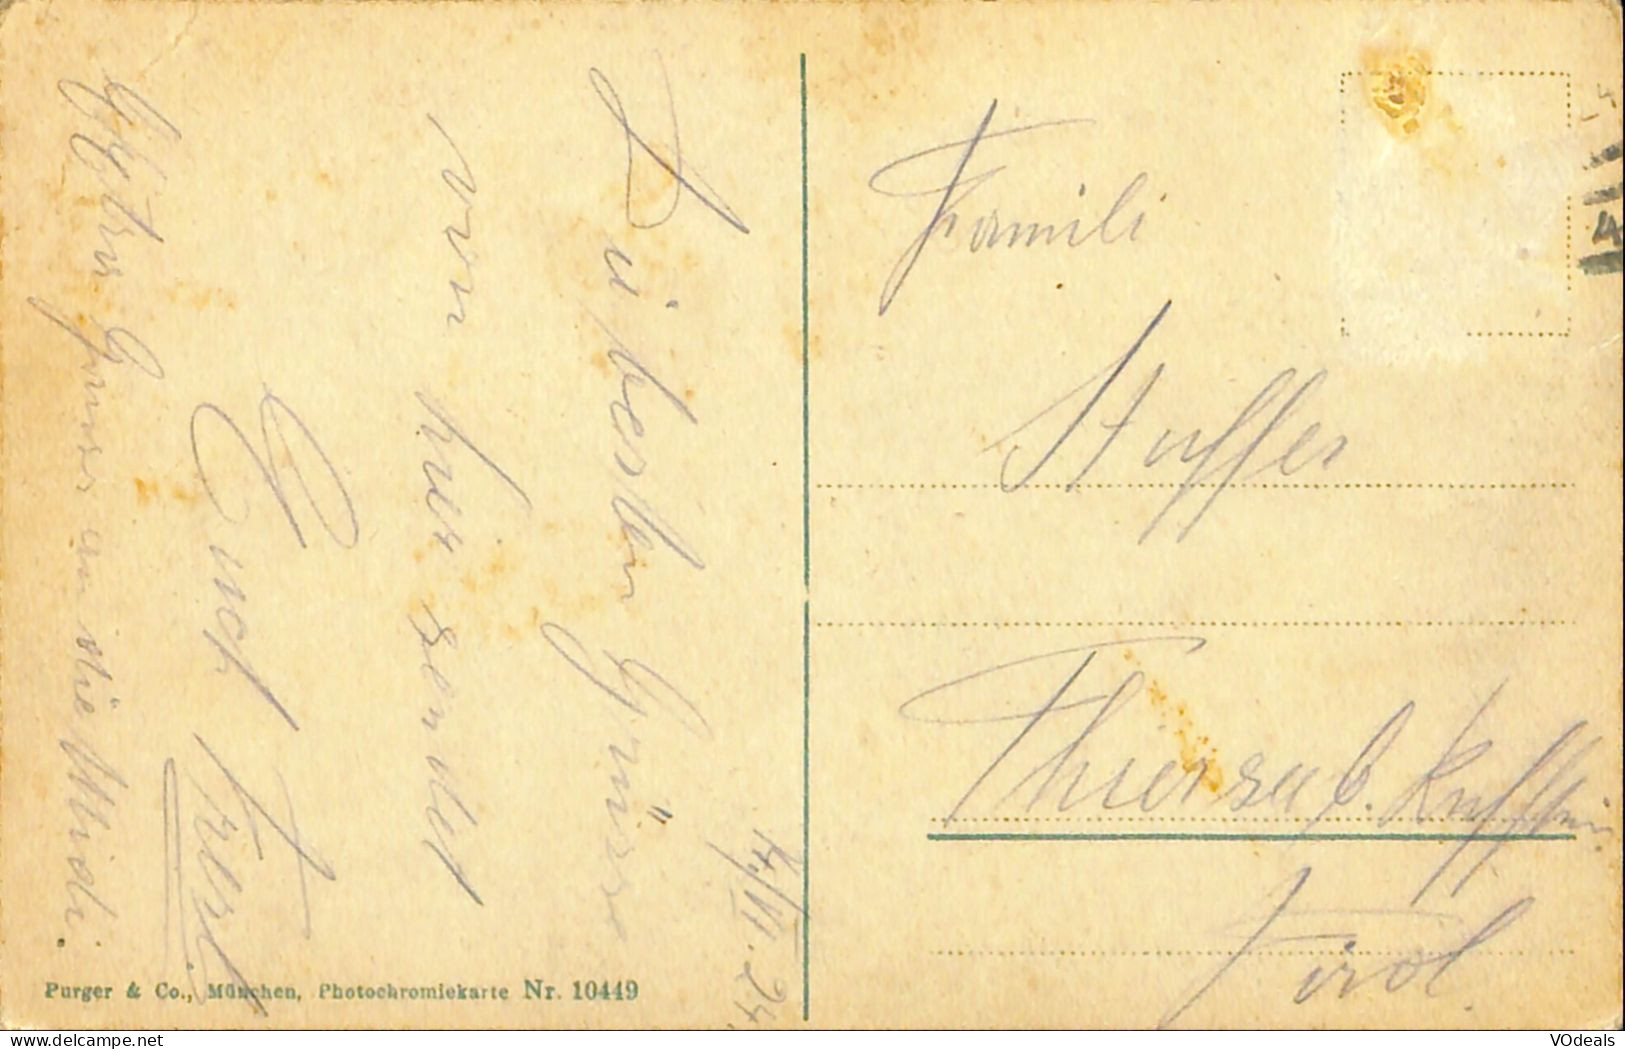 4/VI. 24.
Die besten Grüsse
von hier sendet
Euch
Grüsse an die Midi.
Famili
Stuffer
Thiersee b. Kufstein
Tirol.
4
Purger & Co., München, Photochromiekarte Nr. 10449
VOdeals